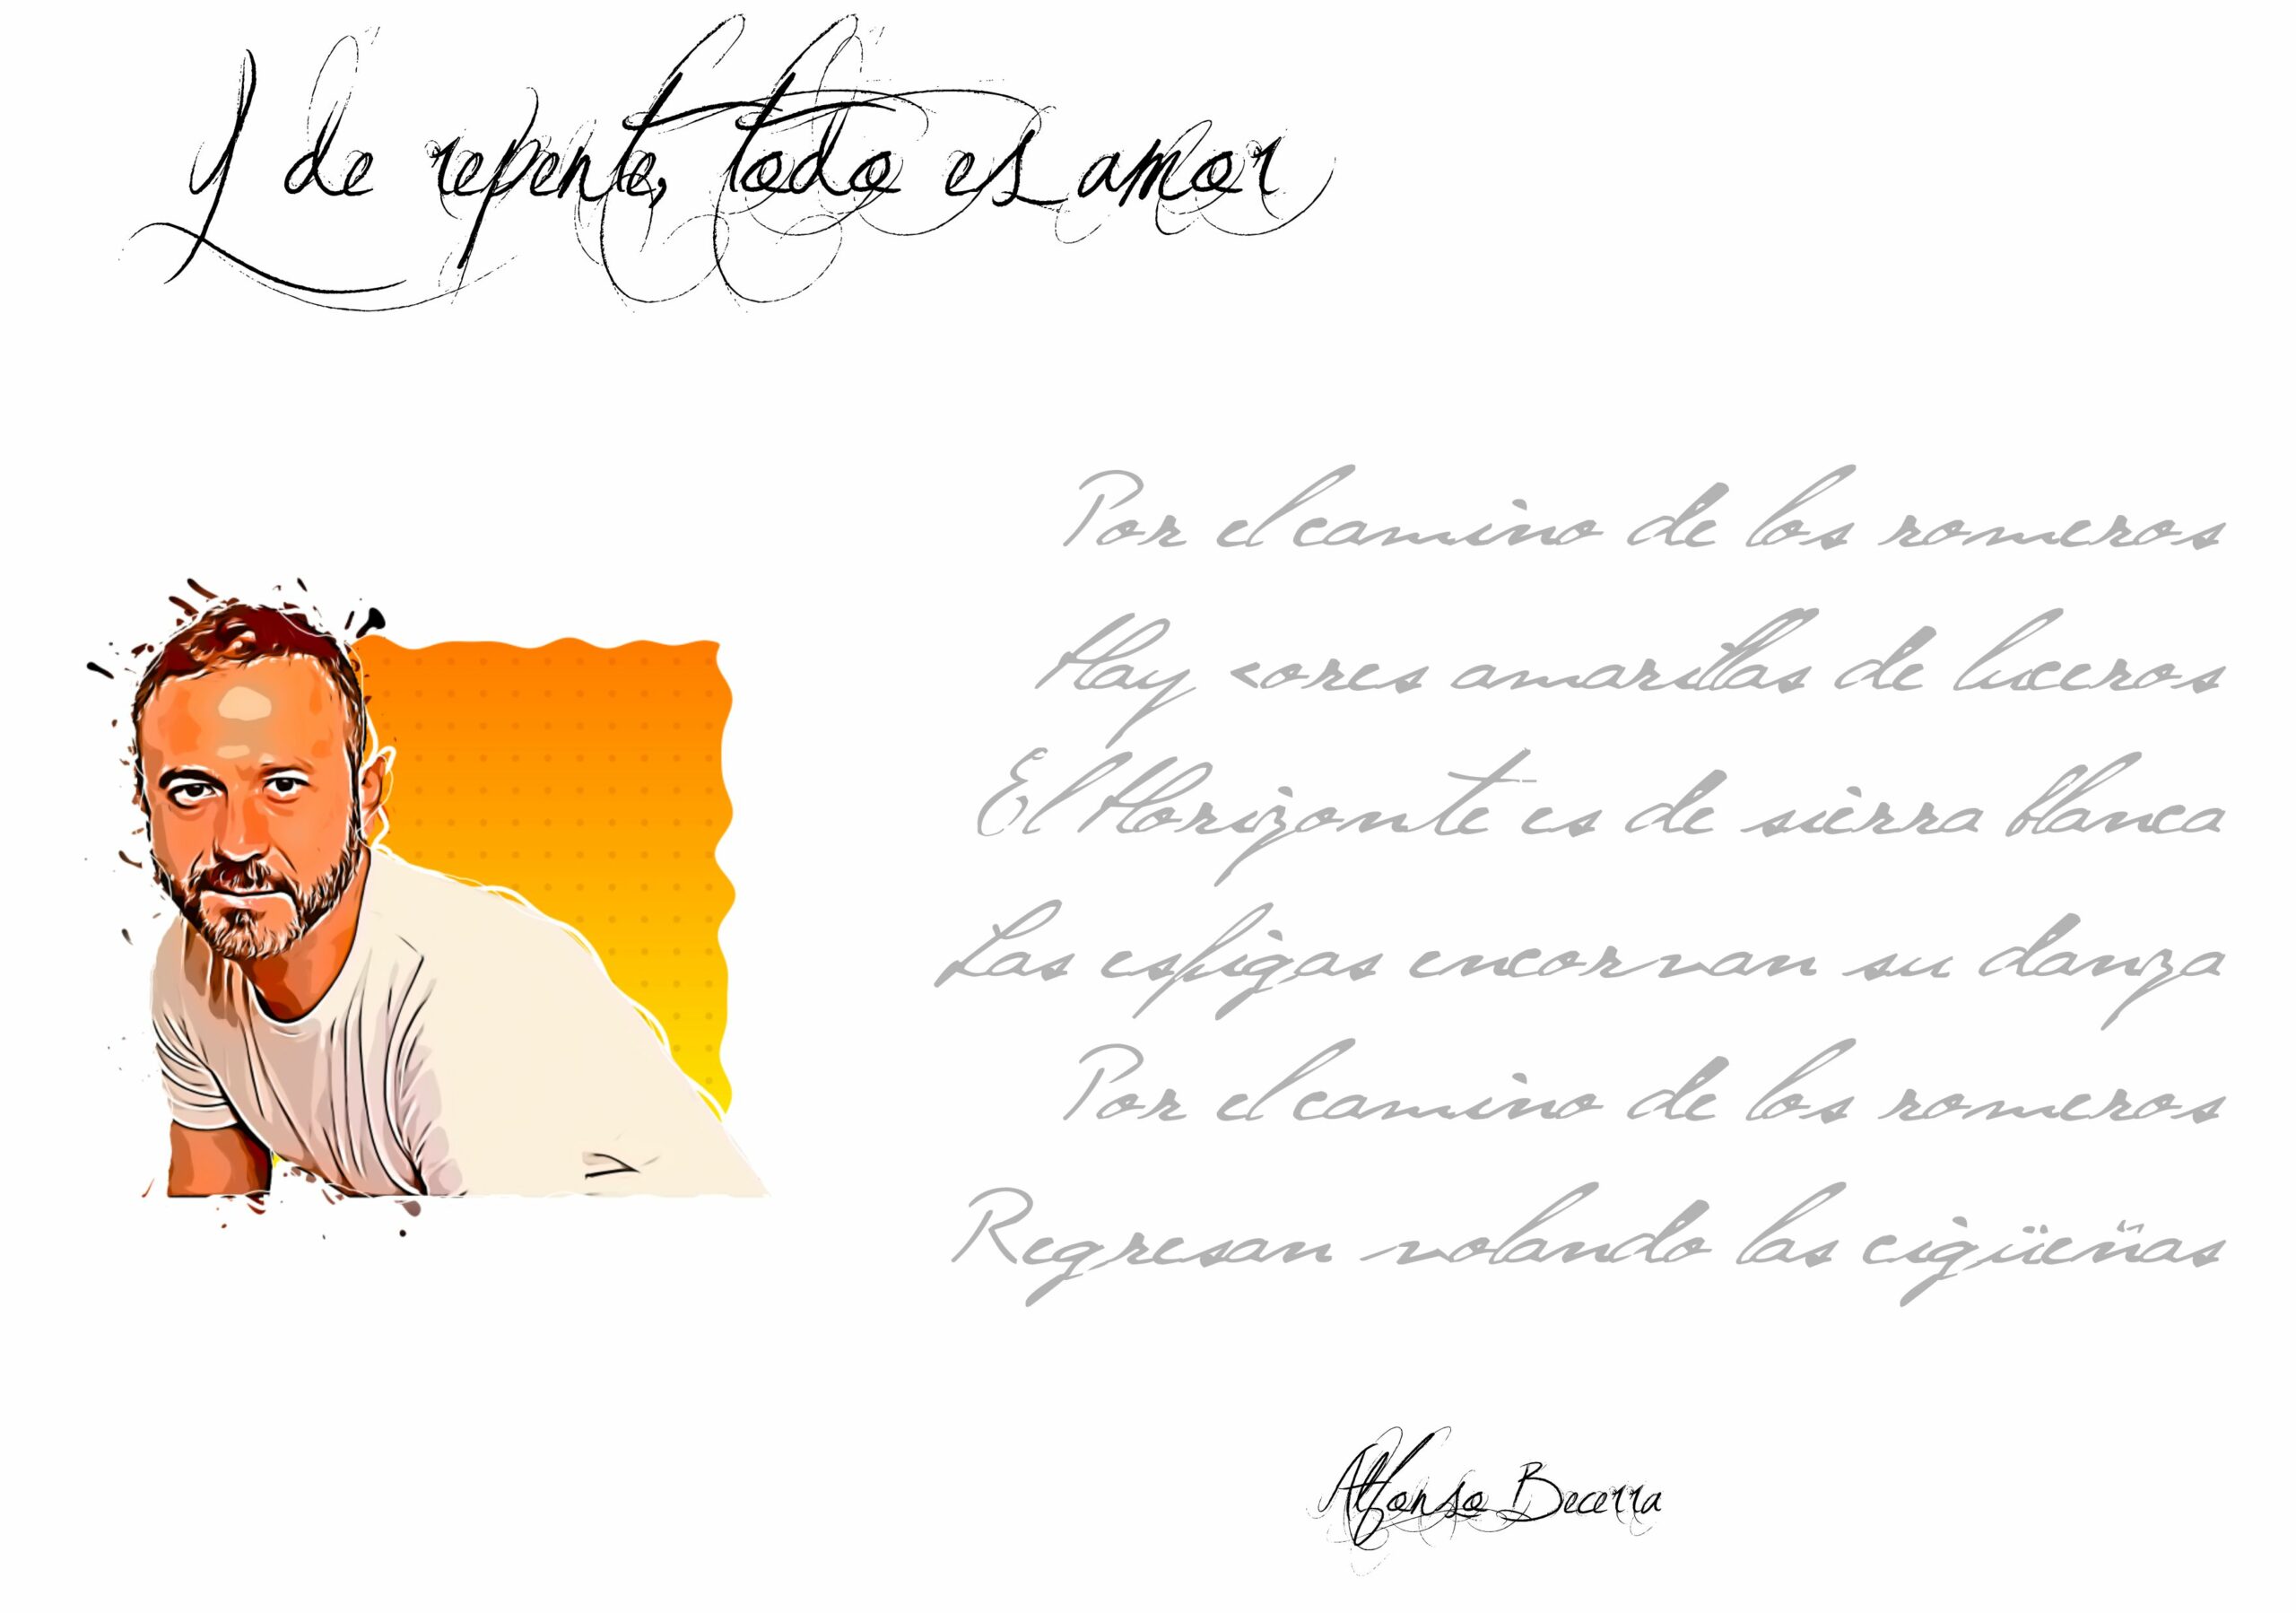 Y de repente, todo es amor
Por el camino de los romeros
Hay <ores amarillas de luceros
El Horizonte es de sierra blanca
Las espigas encorvan su danza
Por el camino de los romeros
Regresan volando las cigüeñas
Alfonso Becerra